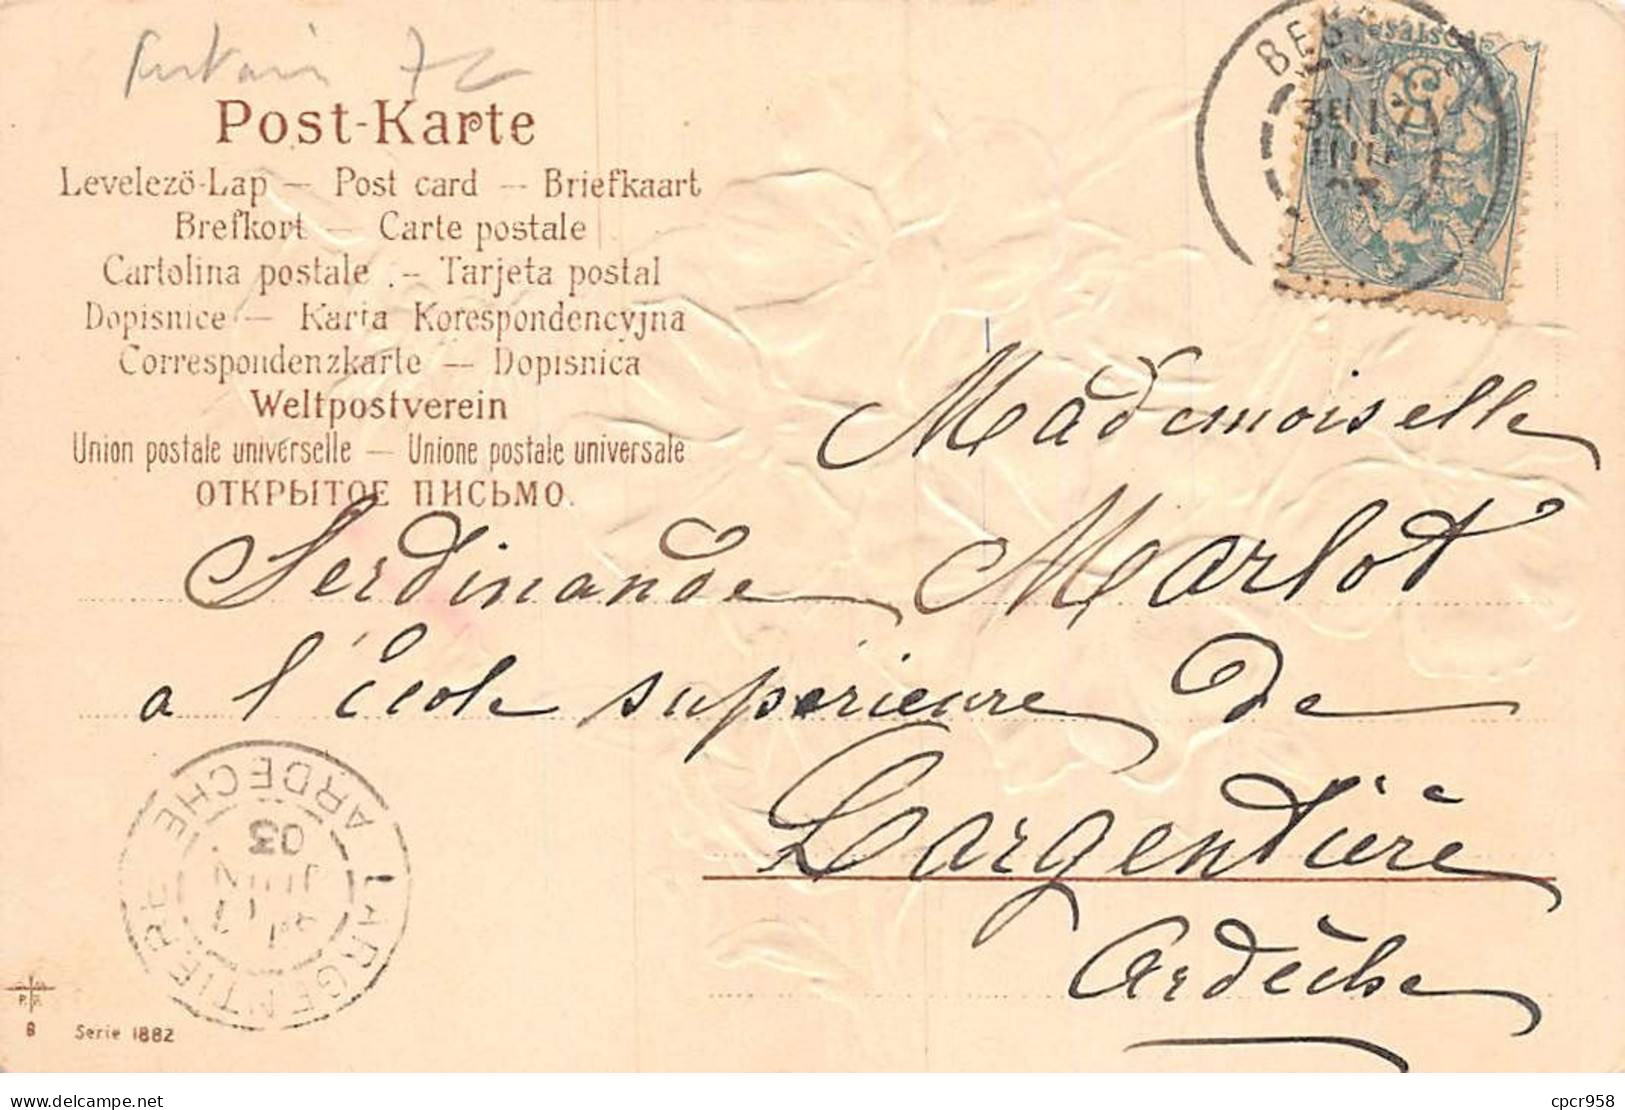 Post-Karte
Levelezö-Lap — Post card — Briefkaart
Brefkort — Carte postale
Cartolina postale . — Tarjeta postal
Dopisnice — Karta Korespondencyjna
Correspondenzkarte — Dopisnica
Weltpostverein
Union postale universelle — Unione postale universale
ОТКРЫТОЕ ПИСЬМО.
Mademoiselle
Ferdinande Marlot
a l'école supérieure de
Largentière
Ardèche
LARGENTIERE ARDECHE
JUIN
03
Serie 1882
www.delcampe.net
cpcr958